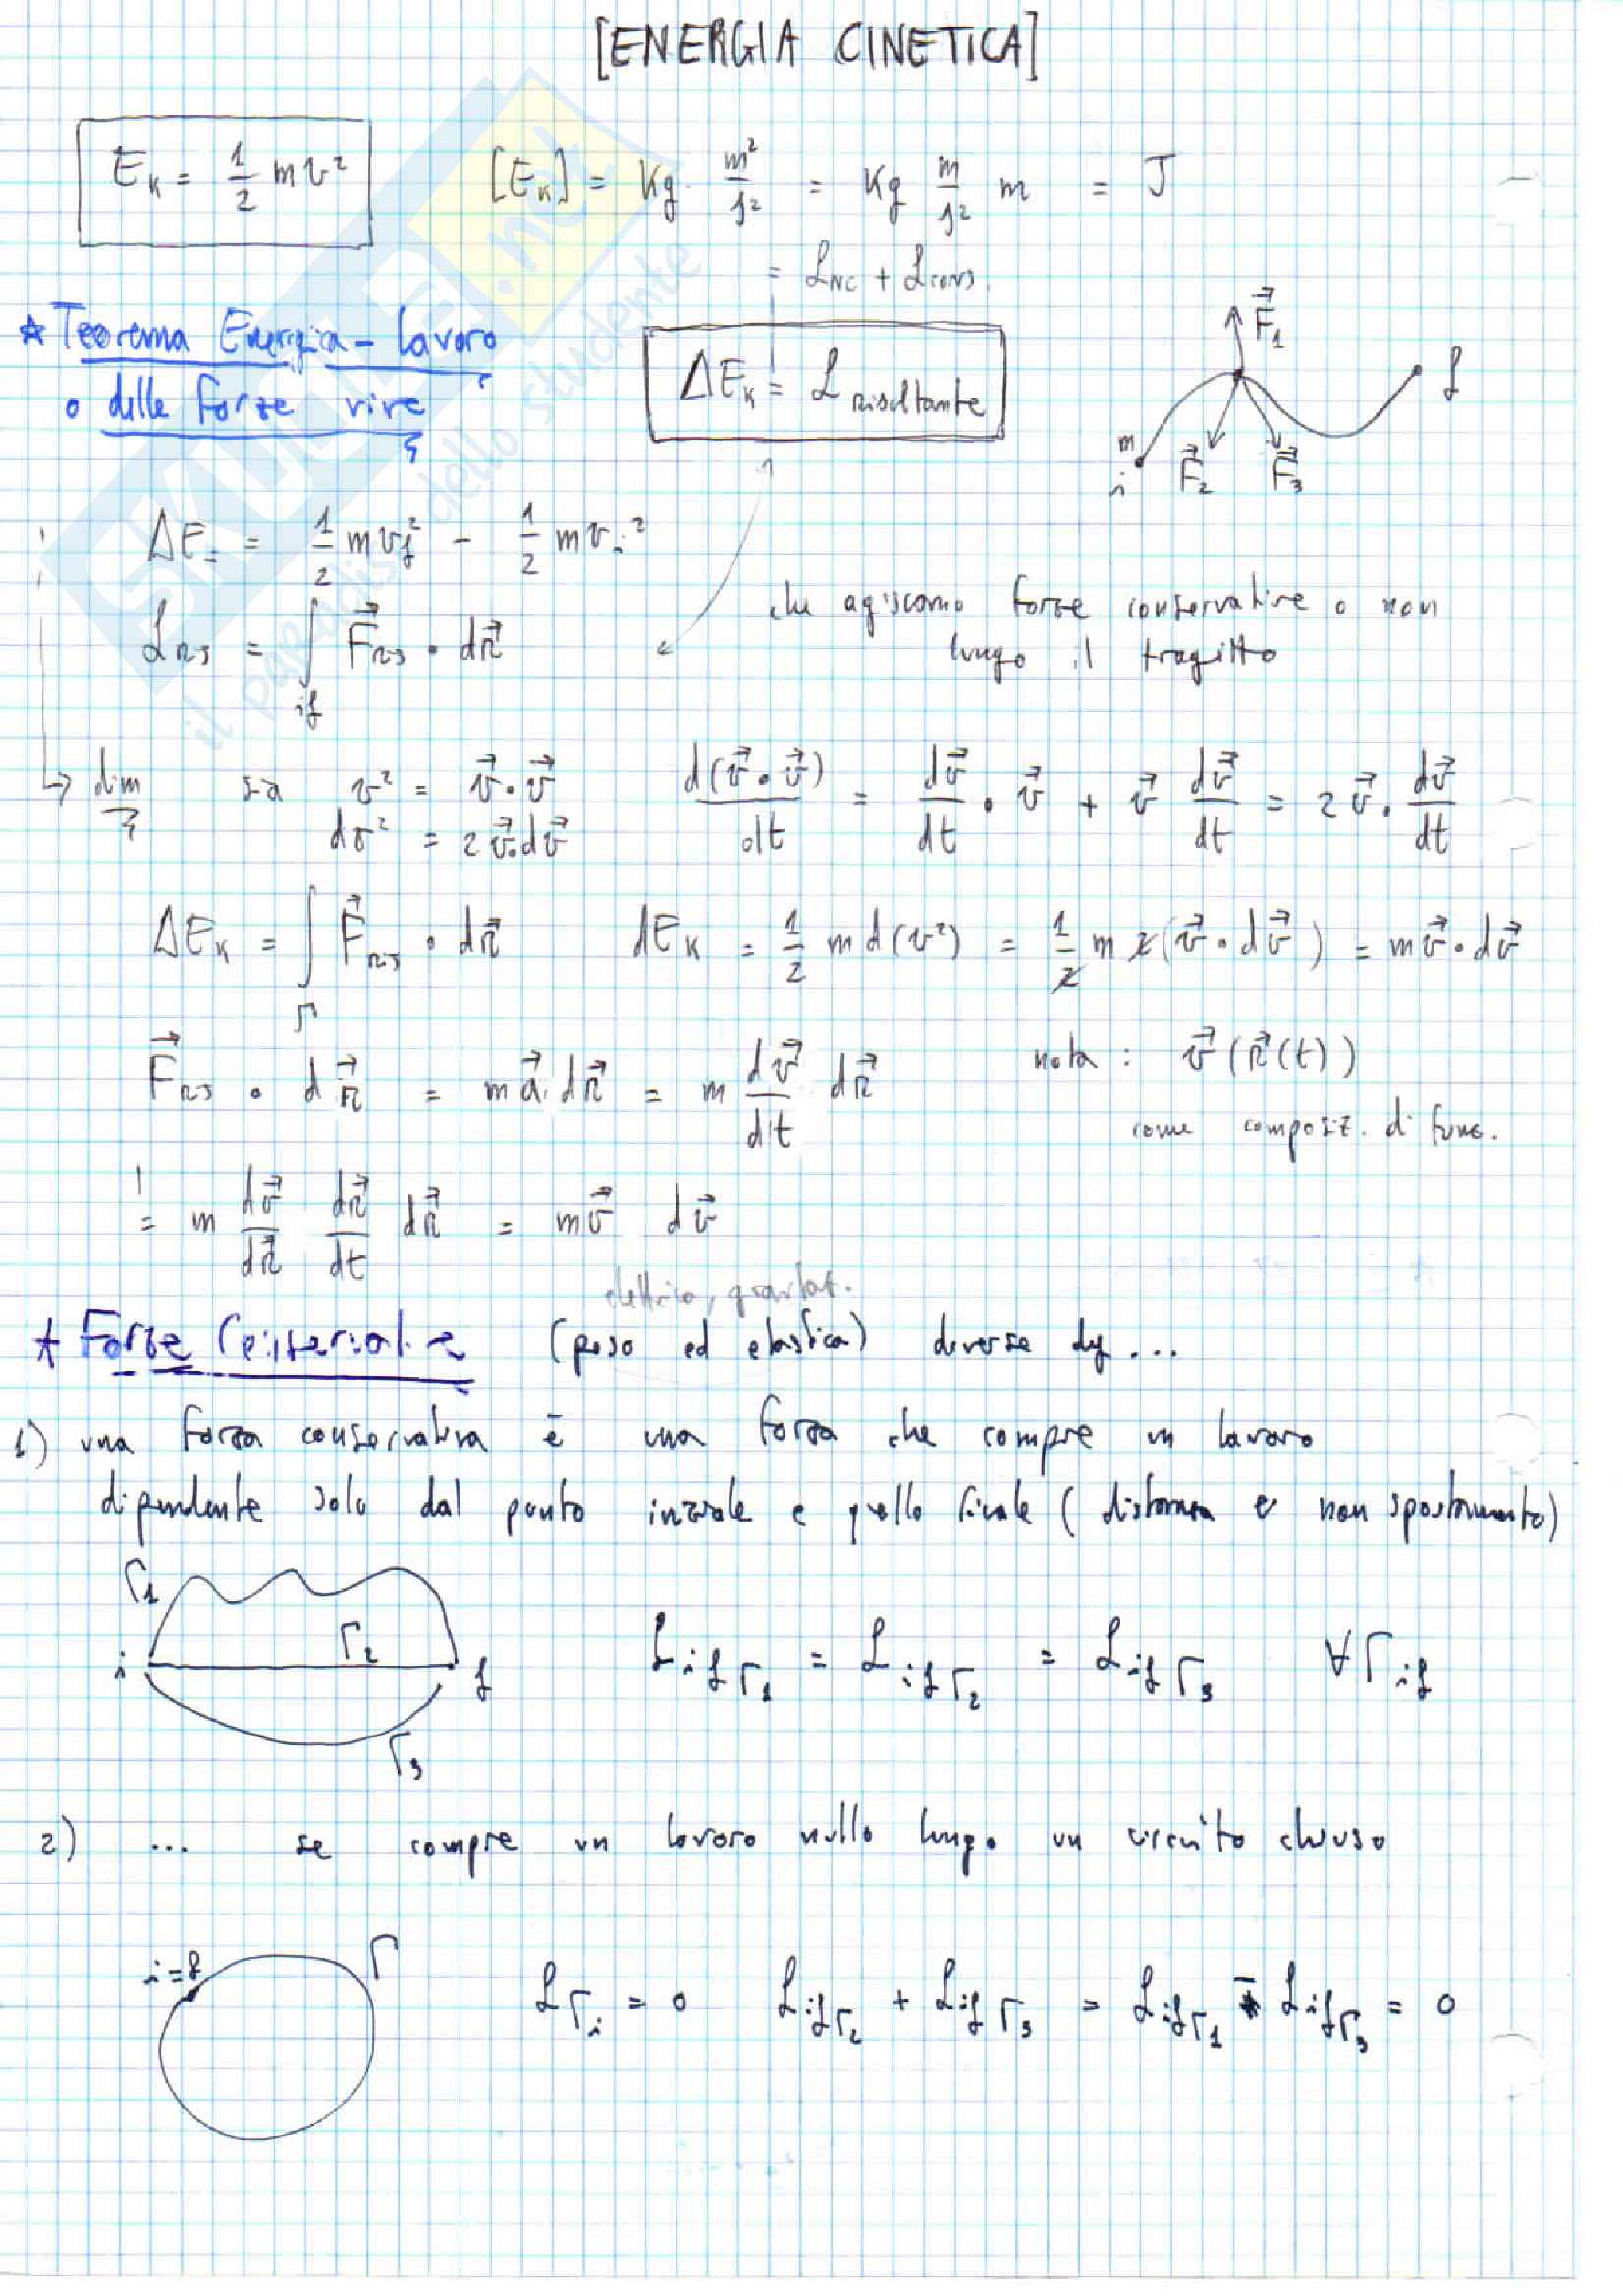 [ENERGIA CINETICA]
E_K = 1/2 m v²   [E_K] = Kg m²/s² = Kg m/s² m = J
= L_NC + L_CONS.
★ Teorema Energia-Lavoro
o delle forze vive
ΔE_K = L_risultante
F⃗₁
f
m
i
F⃗₂ F⃗₃
ΔE = 1/2 m v_f² - 1/2 m v_i²
che agiscano forze conservative o non
L_RIS = ∫_if F⃗_RIS · dr⃗
lungo il tragitto
dim sia v² = v⃗·v⃗   d(v⃗·v⃗)/dt = dv⃗/dt · v⃗ + v⃗ dv⃗/dt = 2 v⃗ · dv⃗/dt
dv² = 2 v⃗·dv⃗
ΔE_K = ∫_Γ F⃗_RIS · dr⃗   dE_K = 1/2 m d(v²) = 1/2 m 2(v⃗·dv⃗) = m v⃗·dv⃗
F⃗_RIS · dr⃗ = m a⃗·dr⃗ = m dv⃗/dt dr⃗   nota: v⃗(r⃗(t))
come composiz. di funz.
= m dv⃗/dr⃗ dr⃗/dt dr⃗ = m v⃗ dv⃗
elettrica, gravitat.
★ Forze Conservative (peso ed elastica) diverse def...
1) una forza conservativa è una forza che compie un lavoro
dipendente solo dal punto iniziale e quello finale (distanza e non spostamento)
Γ₁
i Γ₂ f
Γ₃
L_if Γ₁ = L_if Γ₂ = L_if Γ₃   ∀ Γ_if
2) ... se compie un lavoro nullo lungo un circuito chiuso
i=f Γ
L_Γi = 0   L_if Γ₂ + L_if Γ₃ = L_if Γ₁ - L_if Γ₃ = 0
SKUOLA.net
il paradiso dello studente